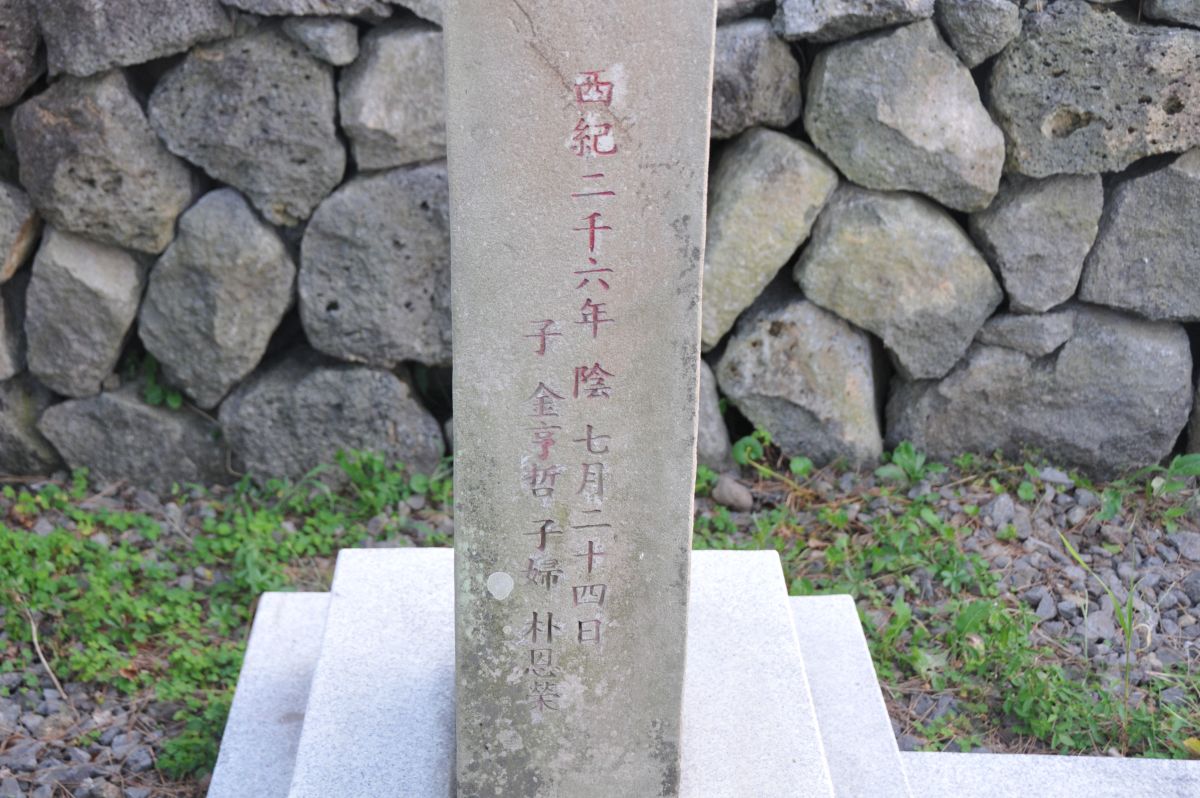 西紀二千六年 陰 七月二十四日
子 金亨哲 子婦 朴恩榮